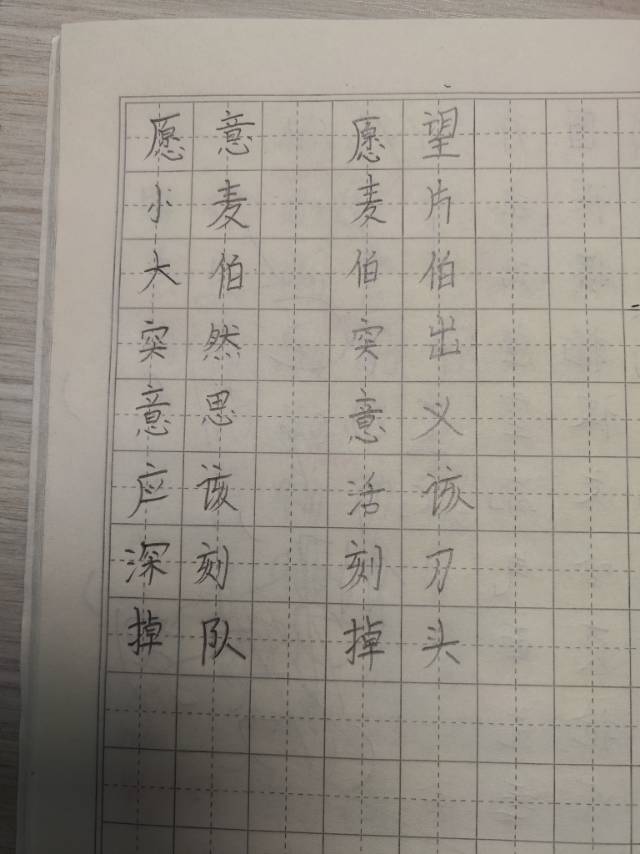 愿意 愿望
小麦 麦片
大伯 伯伯
突然 突出
意思 意义
应该 活该
深刻 刻刀
掉队 掉头